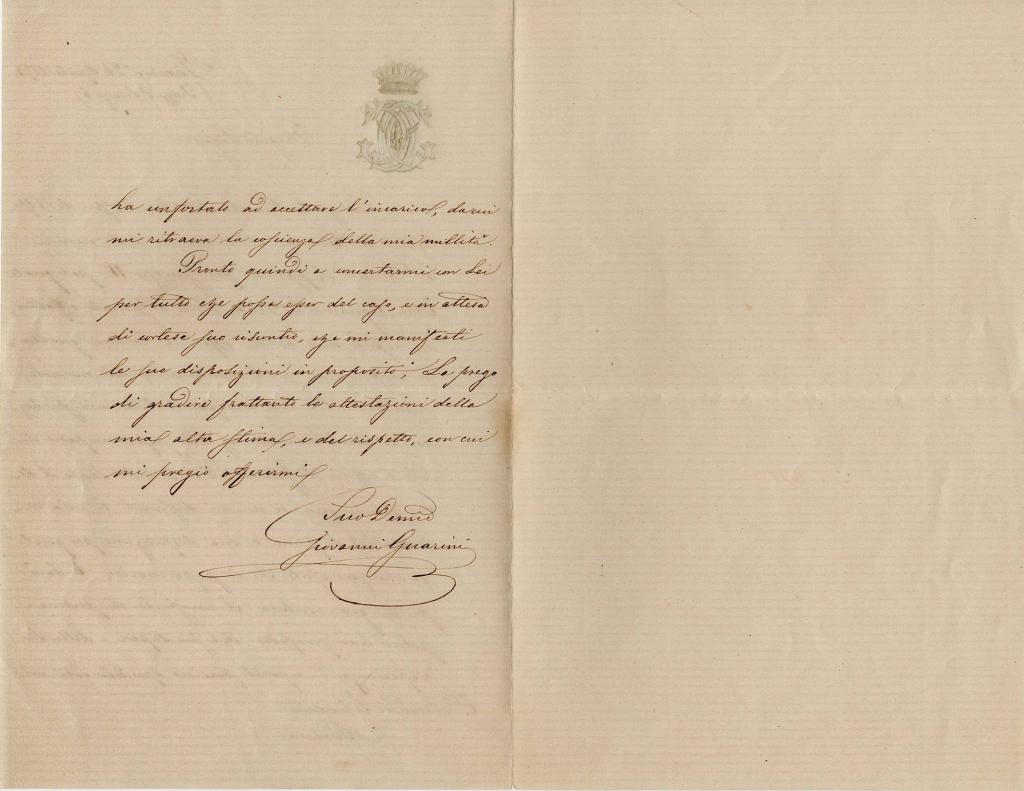 ha confortato ad accettare l'incarico, da cui
mi ritraeva la coscienza della mia nullità.
Pronto quindi a concertarmi con Lei
per tutto che possa esser del caso, e in attesa
di cortese suo riscontro, che mi manifesti
le sue disposizioni in proposito, La prego
di gradire frattanto le attestazioni della
mia alta stima, e del rispetto, con cui
mi pregio offerirmi
Suo Devmo
Giovanni Guarini